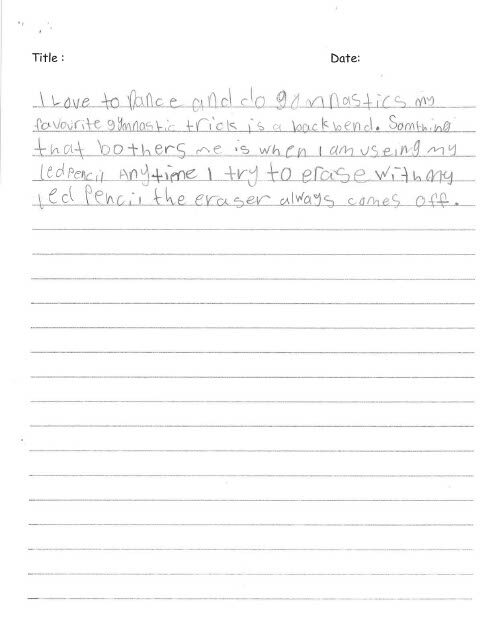 Title : Date:
I Love to Dance and do gymnastics my
favourite gymnastic trick is a backbend. Somthing
that bothers me is when I am useing my
led Pencil Anytime I try to erase with my
led Pencil the eraser always comes off.